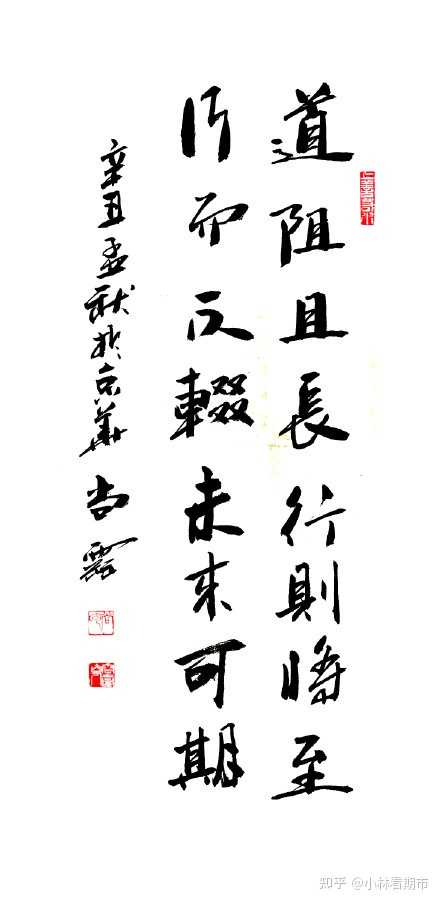 道阻且長行則將至
行而不輟未来可期
辛丑孟秋於京華尚
知乎 @小林看期市